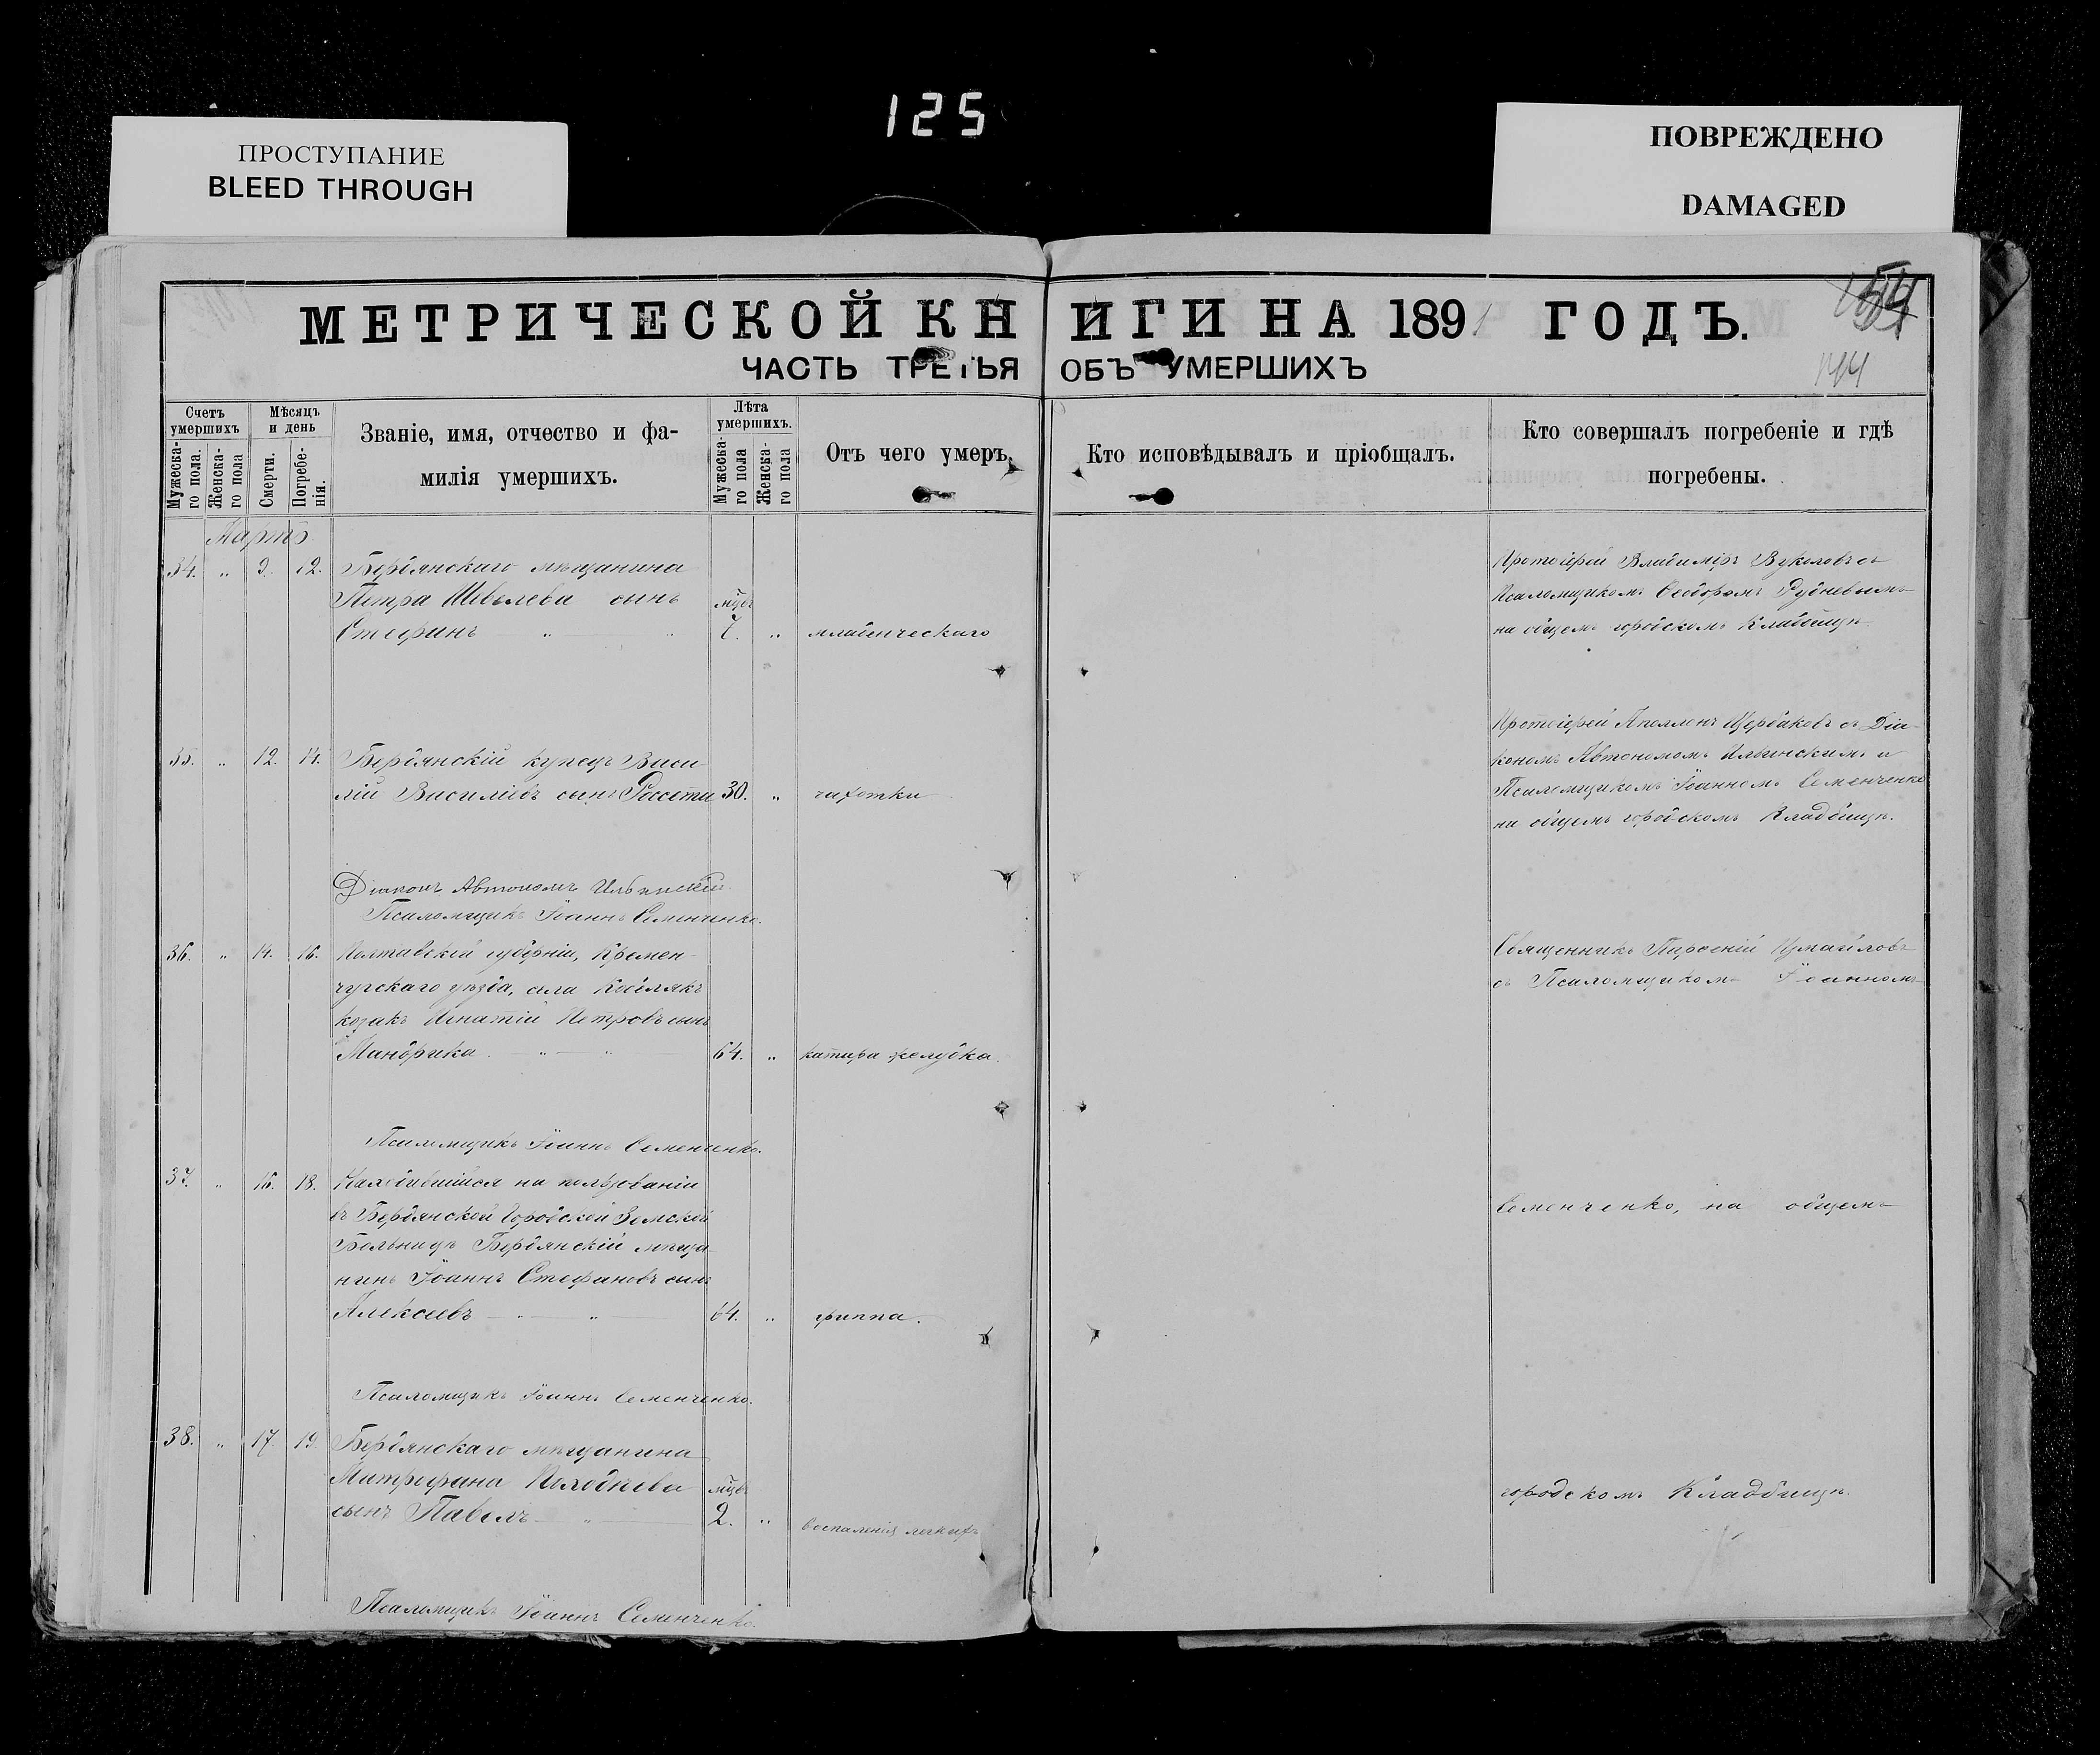 125
ПРОСТУПАНИЕ
BLEED THROUGH
ПОВРЕЖДЕНО
DAMAGED
МЕТРИЧЕСКОЙ КНИГИ НА 1891 ГОДЪ.
144
ЧАСТЬ ТРЕТЬЯ ОБЪ УМЕРШИХЪ
Счетъ умершихъ
Мужеска-го пола.
Женска-го пола
Мѣсяцъ и день
Смерти.
Погребе-нія.
Званіе, имя, отчество и фа-
милія умершихъ.
Лѣта умершихъ.
Мужеска-го пола
Женска-го пола
Отъ чего умеръ.
Кто исповѣдывалъ и пріобщалъ.
Кто совершалъ погребеніе и гдѣ
погребены.
Мартъ
34. „ 9. 12. Бердянскаго мѣщанина
Петра Шевелева сынъ мцъ
Стефанъ „ „ 7. „ младенческаго
Протоіерей Владиміръ Вуколовъ съ
Псаломщикомъ Ѳеодоромъ Рудневымъ
на общемъ городскомъ кладбищѣ
35. „ 12. 14. Бердянскій купецъ Васи-
лій Васильевъ сынъ Россети 30. „ чахотки
Протоіерей Аполлонъ Щербаковъ съ Діа-
кономъ Автономомъ Ильинскимъ и
Псаломщикомъ Іоанномъ Семенченко
на общемъ городскомъ Кладбищѣ.
Діаконъ Автономъ Ильинскій
Псаломщикъ Іоаннъ Семенченко.
36. „ 14. 16. Полтавской губерніи, Кремен-
чугскаго уѣзда, села Кобелякъ
козакъ Игнатій Петровъ сынъ
Мандрика „ „ 64. „ катара желудка.
Священникъ Парѳеній Измаиловъ
съ Псаломщикомъ Іоанномъ
Псаломщикъ Іоаннъ Семенченко.
37. „ 16. 18. Находившійся на пользованіи
въ Бердянской Городской Земской
Больницѣ Бердянскій мѣща-
нинъ Іоаннъ Стефановъ сынъ
Алексѣевъ „ „ 64. „ гриппа.
Семенченко, на общемъ
Псаломщикъ Іоаннъ Семенченко.
38. „ 17. 19. Бердянскаго мѣщанина
Митрофана Колодѣева мцъ
сынъ Павелъ „ 2. „ воспаленія легкихъ
городскомъ Кладбищѣ.
Псаломщикъ Іоаннъ Семенченко.